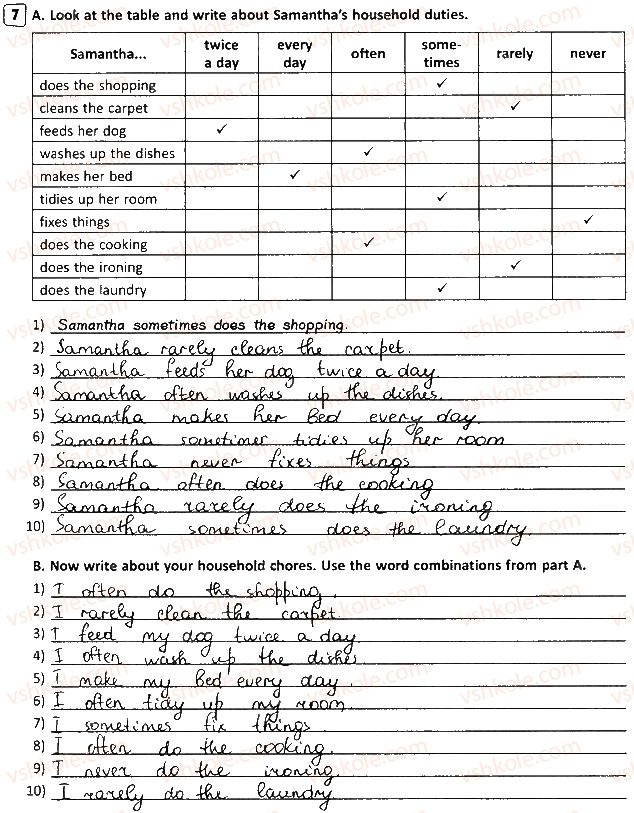 7 A. Look at the table and write about Samantha's household duties.
Samantha... twice a day every day often some-times rarely never
does the shopping ✓
cleans the carpet ✓
feeds her dog ✓
washes up the dishes ✓
makes her bed ✓
tidies up her room ✓
fixes things ✓
does the cooking ✓
does the ironing ✓
does the laundry ✓
1) Samantha sometimes does the shopping.
2) Samantha rarely cleans the carpet.
3) Samantha feeds her dog twice a day.
4) Samantha often washes up the dishes.
5) Samantha makes her bed every day.
6) Samantha sometimes tidies up her room
7) Samantha never fixes things
8) Samantha often does the cooking
9) Samantha rarely does the ironing
10) Samantha sometimes does the laundry.
B. Now write about your household chores. Use the word combinations from part A.
1) I often do the shopping.
2) I rarely clean the carpet.
3) I feed my dog twice a day
4) I often wash up the dishes
5) I make my bed every day.
6) I often tidy up my room
7) I sometimes fix things
8) I often do the cooking.
9) I never do the ironing.
10) I rarely do the laundry
vshkole.com